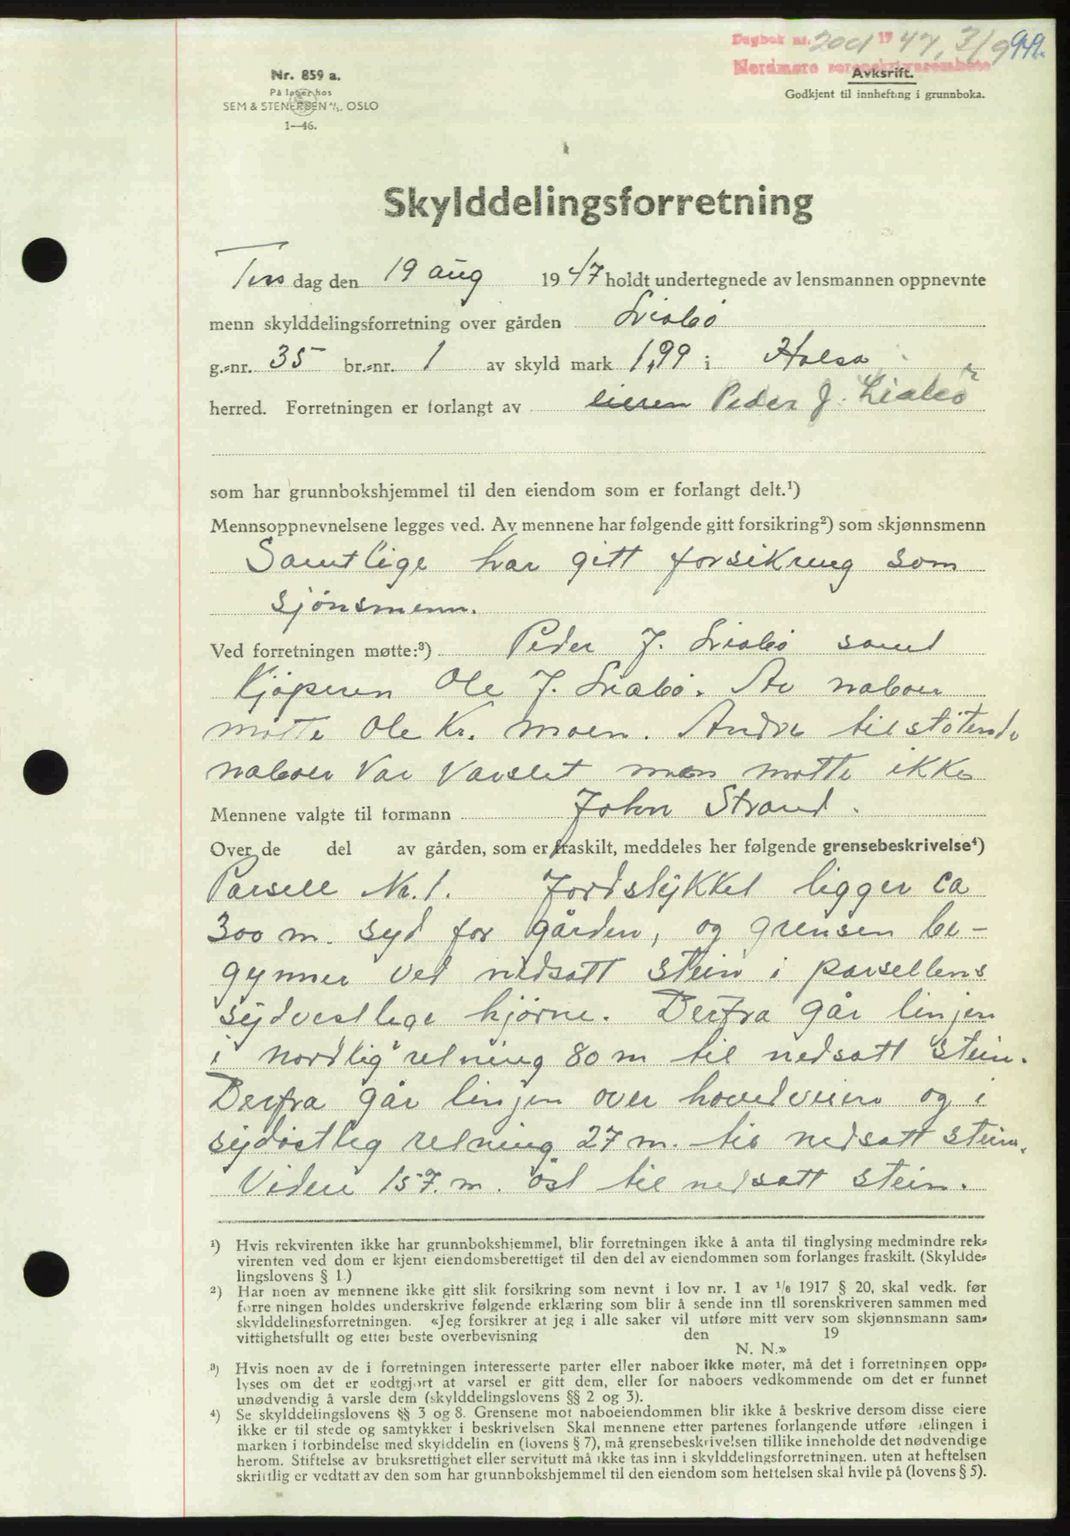 Dagbok nr. 2001 1947, 3/9 949.
Nordmøre sorenskriverembete
Nr. 859 a.
På lager hos
SEM & STENERSEN A/S, OSLO
1—46.
Avkskrift.
Godkjent til innhefting i grunnboka.
Skylddelingsforretning
Tirsdag den 19 aug 1947 holdt undertegnede av lensmannen oppnevnte
menn skylddelingsforretning over gården Liabø
g.-nr. 35 br.-nr. 1 av skyld mark 1,99 i Halsa
herred. Forretningen er forlangt av eieren Peder J. Liabø
som har grunnbokshjemmel til den eiendom som er forlangt delt.¹)
Mennsoppnevnelsene legges ved. Av mennene har følgende gitt forsikring²) som skjønnsmenn
Samtlige har gitt forsikring som
sjønsmenn.
Ved forretningen møtte:³) Peder J. Liabø samt
kjøperen Ole J. Liabø. Av naboer
møtte Ole Kr. Moen. Andre tilstøtende
naboer var varslet men møtte ikke
Mennene valgte til formann John Strand.
Over de del av gården, som er fraskilt, meddeles her følgende grensebeskrivelse⁴)
Parsell Nr. 1. Jordstykket ligger ca
300 m. syd for gården, og grensen be-
gynner ved nedsatt stein i parsellens
sydvestlige hjørne. Derfra går linjen
i nordlig retning 80 m til nedsatt stein.
Derfra går linjen over hovedveien og i
sydøstlig retning 27 m. til nedsatt stein.
Videre 157. m. øst til nedsatt stein.
¹) Hvis rekvirenten ikke har grunnbokshjemmel, blir forretningen ikke å anta til tinglysing medmindre rek-
virenten ved dom er kjent eiendomsberettiget til den del av eiendommen som forlanges fraskilt. (Skyldde-
lingslovens § 1.)
²) Har noen av mennene ikke gitt slik forsikring som nevnt i lov nr. 1 av 1/6 1917 § 20, skal vedk. før
forretningen holdes underskrive følgende erklæring som blir å sende inn til sorenskriveren sammen med
skylddelingsforretningen. «Jeg forsikrer at jeg i alle saker vil utføre mitt verv som skjønnsmann sam-
vittighetsfullt og etter beste overbevisning den 19
N. N.»
³) Hvis noen av de i forretningen interesserte parter eller naboer ikke møter, må det i forretningen opp-
lyses om det er godtgjort at varsel er gitt dem, eller for naboers vedkommende om det er funnet
unødvendig å varsle dem (skylddelingslovens §§ 2 og 3).
⁴) Se skylddelingslovens §§ 3 og 8. Grensene mot naboeiendommen blir ikke å beskrive dersom disse eiere
ikke er til stede og samtykker i beskrivelsen Skal mennene etter partenes forlangende utføre delingen i
marken i forbindelse med skylddelin en (lovens § 7), må grensebeskrivelsen tillike inneholde det nødvendige
herom. Stiftelse av bruksrettighet eller servitutt må ikke tas inn i skylddelingsforretningen. uten at heftelsen
skriftlig er vedtatt av den som har grunnbokshjemmel til den eiendom som heftelsen skal hvile på (lovens § 5).